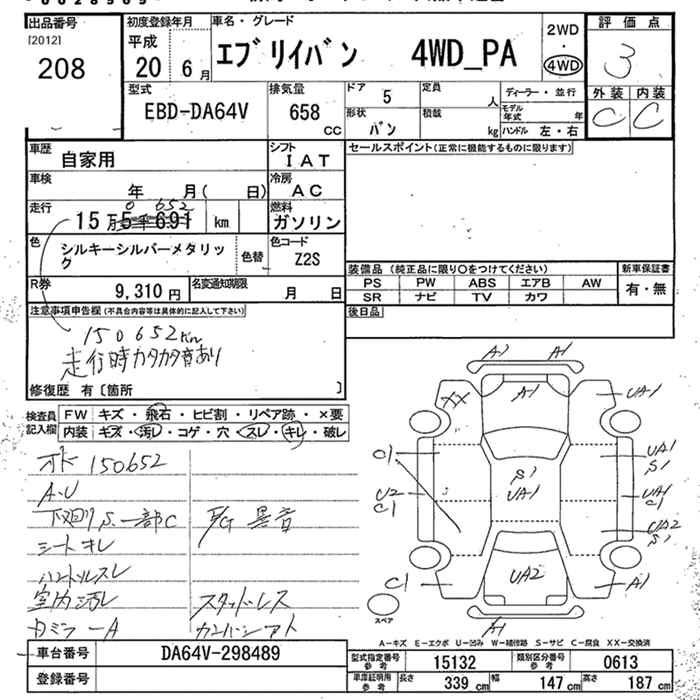 出品番号
[2012]
208
初度登録年月
平成
20年6月
車名・グレード
エブリイバン 4WD_PA
2WD
・
4WD
評価点
3
外装 内装
C C
型式
EBD-DA64V
排気量
658
CC
ドア
5
定員
人
形状
バン
積載
kg
ディーラー・並行
モデル年式 年
ハンドル 左・右
車歴
自家用
シフト
IAT
車検
年 月( 日)
冷房
AC
走行
0 652
15万5千691 km
燃料
ガソリン
色
シルキーシルバーメタリック
色替
色コード
Z2S
R券
9,310円
名変通知期限
月 日
セールスポイント(正常に機能するものに限ります)
装備品(純正品に限り○をつけてください)
PS PW ABS エアB AW
SR ナビ TV カワ
新車保証書
有・無
後日品
注意事項申告欄(不具合内容等は具体的に記入して下さい)
150652Km
走行時カタカタ音あり
修復歴 有〔箇所 〕
検査員記入欄
FW キズ・飛石・ヒビ割・リペア跡・×要
内装 キズ・汚レ・コゲ・穴・スレ・キレ・破レ
150652
A・U
下廻りS.一部C
E/G異音
シートキレ
ハンドルスレ
室内汚レ
スタッドレス
A1 A1
XX A1 UA1
C1 S1 UA1 UA1 S1
U2 C1 UA1 C1
UA2 S1
C1 UA2 A1
A1
スペア
A-キズ E-エクボ U-凹み W-補修跡 S-サビ C-腐食 XX-交換済
車台番号
DA64V-298489
登録番号
型式指定番号 参考
15132
類別区分番号 参考
0613
車庫証明用 参考
長さ 339cm 幅 147cm 高さ 187cm